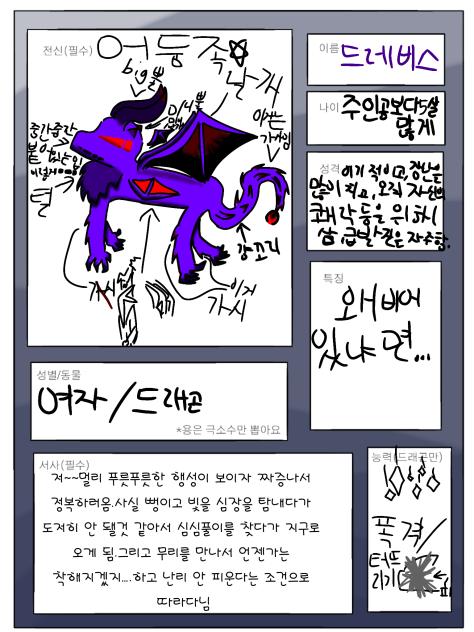 전신(필수)
어둠족
날개
big뿔
미니뿔
이게는
가시임
중간중간
털
가시
이거
가시
걍꼬리
이름
드레버스
나이
주인공보다5살
많게
성격
이기적이고, 장난을
많이 치고, 오직 자신의
쾌락 등을 위해
삼, 급발진은 자주함.
특징
왜 비어
있냐면...
성별/동물
여자/드래곤
*용은 극소수만 뽑아요
서사(필수)
져~~멀리 푸릇푸릇한 행성이 보이자 짜증나서
정복하려옴.사실 뻥이고 빛을 심장을 탐내다가
도저히 안 될것 같아서 심심풀이를 찾다가 지구로
오게 됨.그리고 무리를 만나서 언젠가는
착해지겠지....하고 난리 안 피운다는 조건으로
따라다님
능력(드래곤만)
폭격/
터뜨
리기